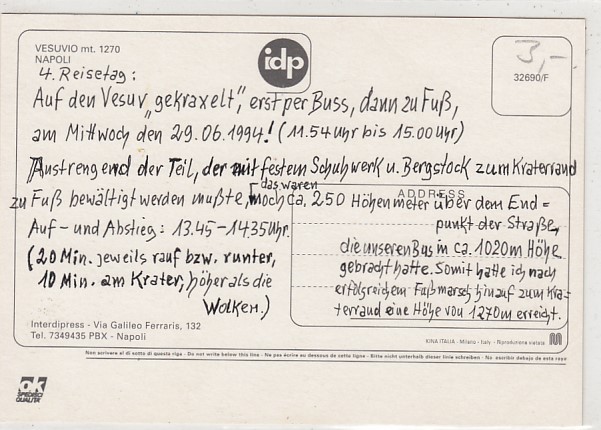 VESUVIO mt. 1270
NAPOLI
idp
3,-
32690/F
4. Reisetag:
Auf den Vesuv „gekraxelt", erst per Buss, dann zu Fuß,
am Mittwoch den 29.06.1994! (11.54 Uhr bis 15.00 Uhr)
Anstrengend der Teil, der mit festem Schuhwerk u. Bergstock zum Kraterrand
zu Fuß bewältigt werden mußte, das waren noch ca. 250 Höhenmeter über dem End=
ADDRESS
punkt der Straße,
Auf- und Abstieg: 13.45-14.35 Uhr.
(20 Min. jeweils rauf bzw. runter,
10 Min. am Krater, höher als die
Wolken.)
die unseren Bus in ca. 1020m Höhe
gebracht hatte. Somit hatte ich nach
erfolgreichem Fußmarsch hinauf zum Kra=
terrand eine Höhe von 1270m erreicht.
Interdipress - Via Galileo Ferraris, 132
Tel. 7349435 PBX - Napoli
KINA ITALIA - Milano - Italy - Riproduzione vietata
Non scrivere al di sotto di questa riga - Do not write below this line - Ne pas écrire au dessous de cette ligne - Bitte nicht unterhalb dieser linie schreiben - No escribir debajo de esta raya
ok
SPEDISCI
QUALITA'